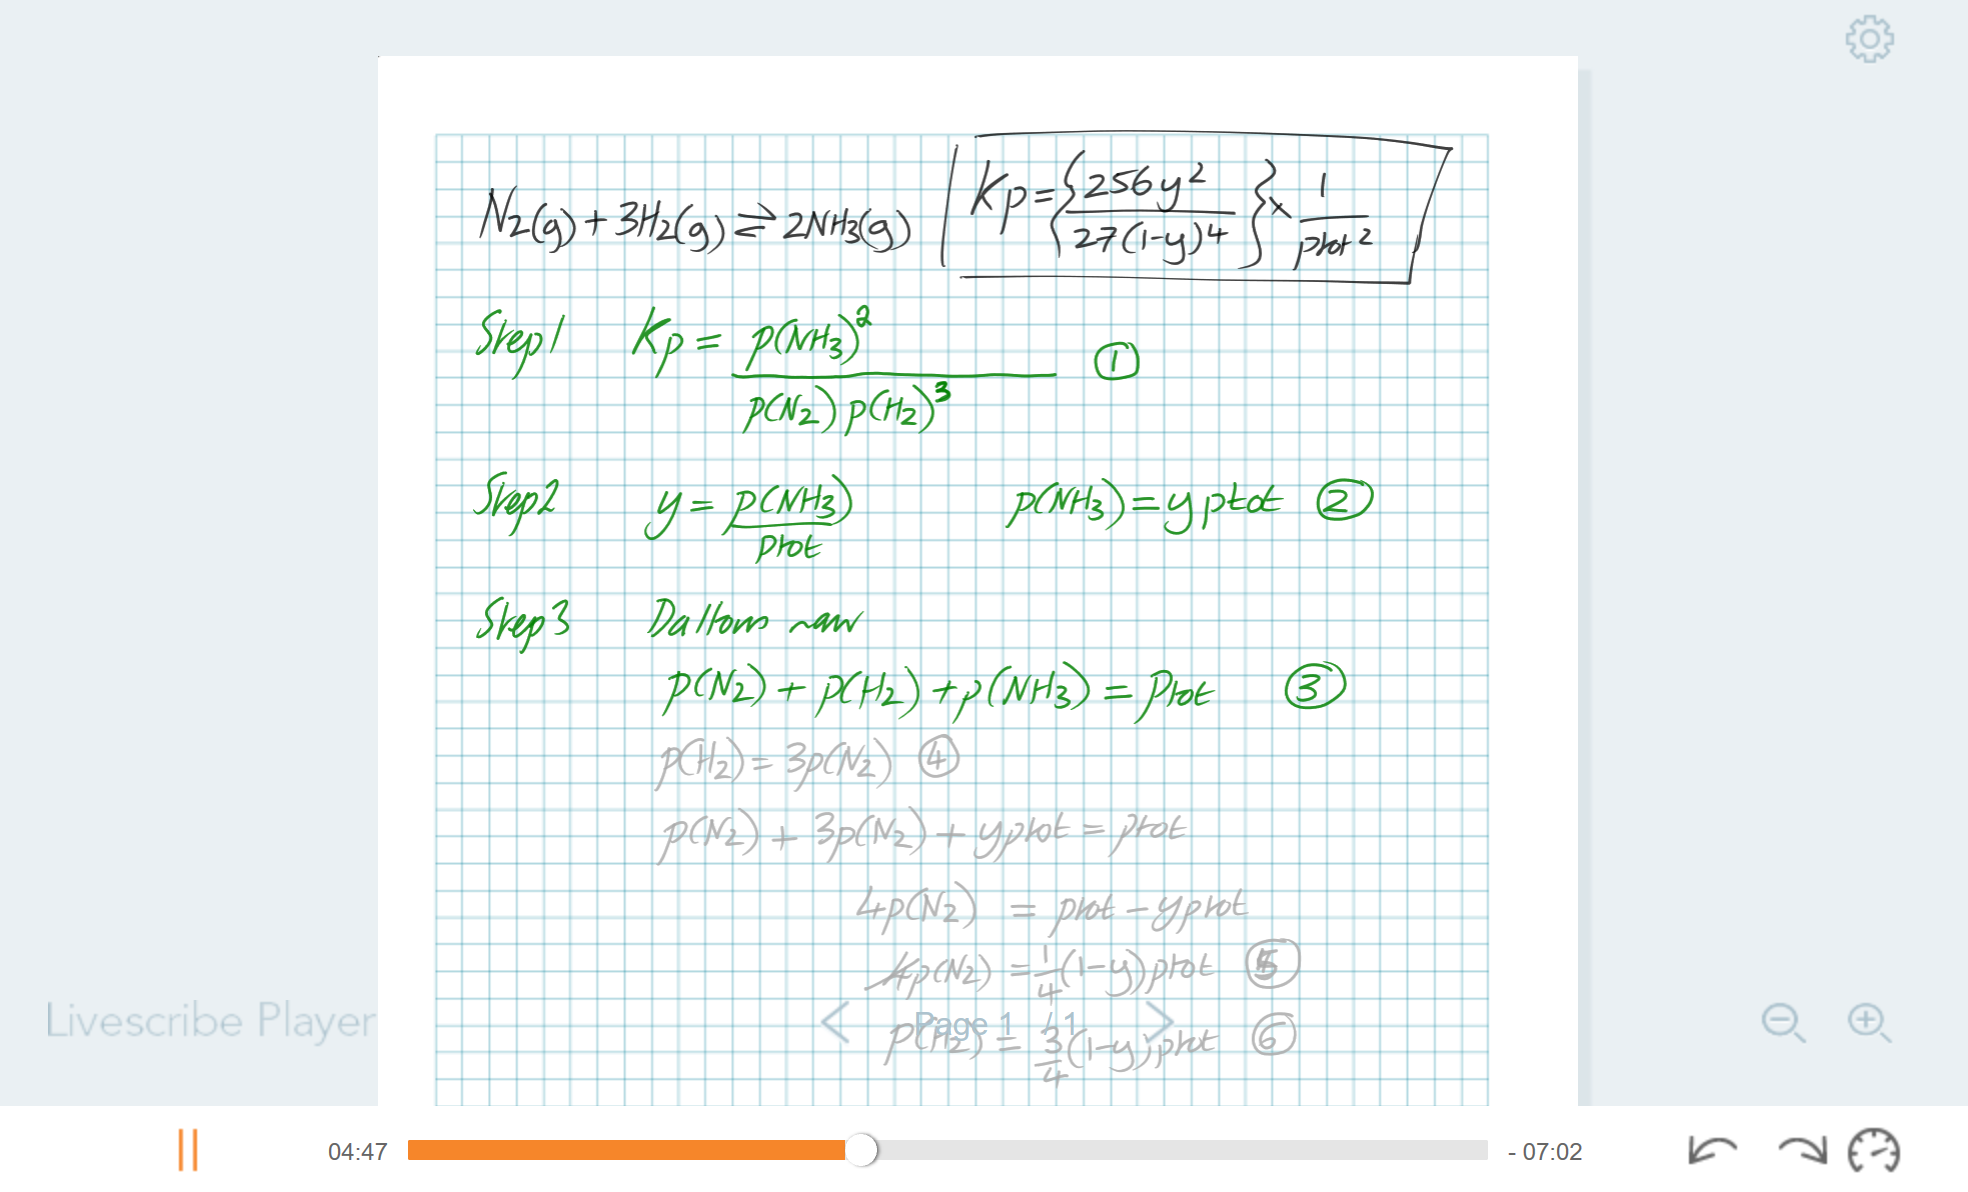 N2(g) + 3H2(g) ⇌ 2NH3(g) Kp = {256y²/27(1-y)⁴} × 1/ptot²
Step1 Kp = p(NH3)²/p(N2) p(H2)³ ①
Step2 y = p(NH3)/ptot p(NH3) = y ptot ②
Step3 Daltons
p(N2) + p(H2) + p(NH3) = Ptot ③
p(H2) = 3p(N2) ④
p(N2) + 3p(N2) + yptot = ptot
4p(N2) = ptot - yptot
4p(N2) = 1/4(1-y)ptot ⑤
p(H2) = 3/4(1-y)ptot ⑥
Livescribe Player
Page 1 / 1
04:47 - 07:02